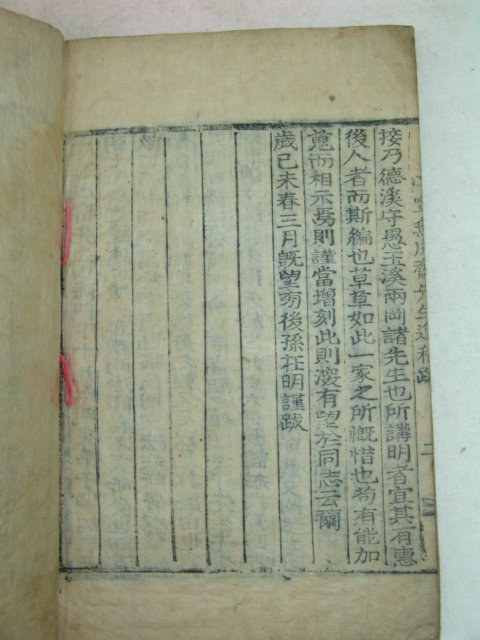 接乃德溪守愚玉溪兩岡諸先生也所講明者宜其有惠
後人者而斯編也草草如此一家之所慨惜也苟有能加
蒐而相示焉則謹當增刻此則深有望於同志云爾
歲己未春三月旣望 後孫在明謹跋
先生逸稿跋
二